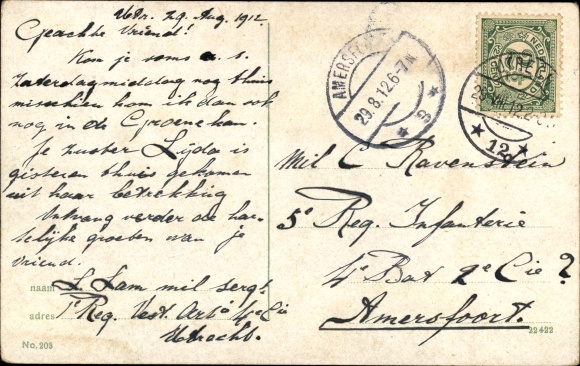 Utr. 29 Aug. 1912.
Geachte Vriend!
Kom je soms a. s.
Zaterdagmiddag nog thuis
misschien kom ik dan ook
nog in de Groenekan.
Je zuster Lijda is
gisteren thuis gekomen
uit haar betrekking
Ontvang verder de har-
telijke groeten van je
vriend.
naam L. Lam mil serg!
adres 1e Reg. Vest. Arté 4e Cie
Utrecht.
No. 203
AMERSFOORT
29.8.12.6-7N
NEDERLAND
UTRECHT
12
Mil C Ravenstein
5e Reg. Infanterie
4e Bat 2e Cie?
Amersfoort.
22422